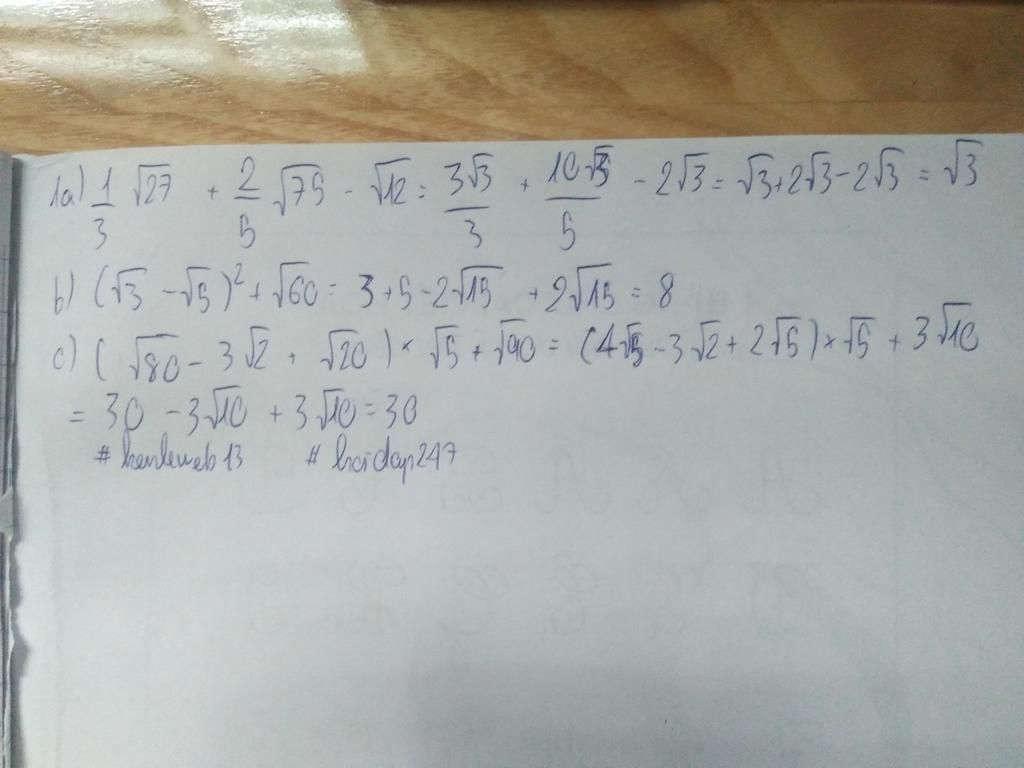 1a) 1/3 √27 + 2/5 √75 - √12 = 3√3/3 + 10√3/5 - 2√3 = √3 + 2√3 - 2√3 = √3
b) (√3 - √5)² + √60 = 3 + 5 - 2√15 + 2√15 = 8
c) (√80 - 3√2 + √20) × √5 + √90 = (4√5 - 3√2 + 2√5) × √5 + 3√10
= 30 - 3√10 + 3√10 = 30
# hoidap247